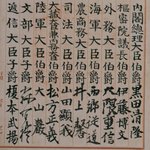 内閣總理大臣伯爵 黒田清隆
樞密院議長伯爵 伊藤博文
外務大臣伯爵 大隈重信
海軍大臣伯爵 西郷從道
農商務大臣伯爵 井上馨
司法大臣伯爵 山田顯義
大藏大臣兼内務大臣伯爵 松方正義
陸軍大臣伯爵 大山巖
文部大臣子爵 森有禮
遞信大臣子爵 榎本武揚